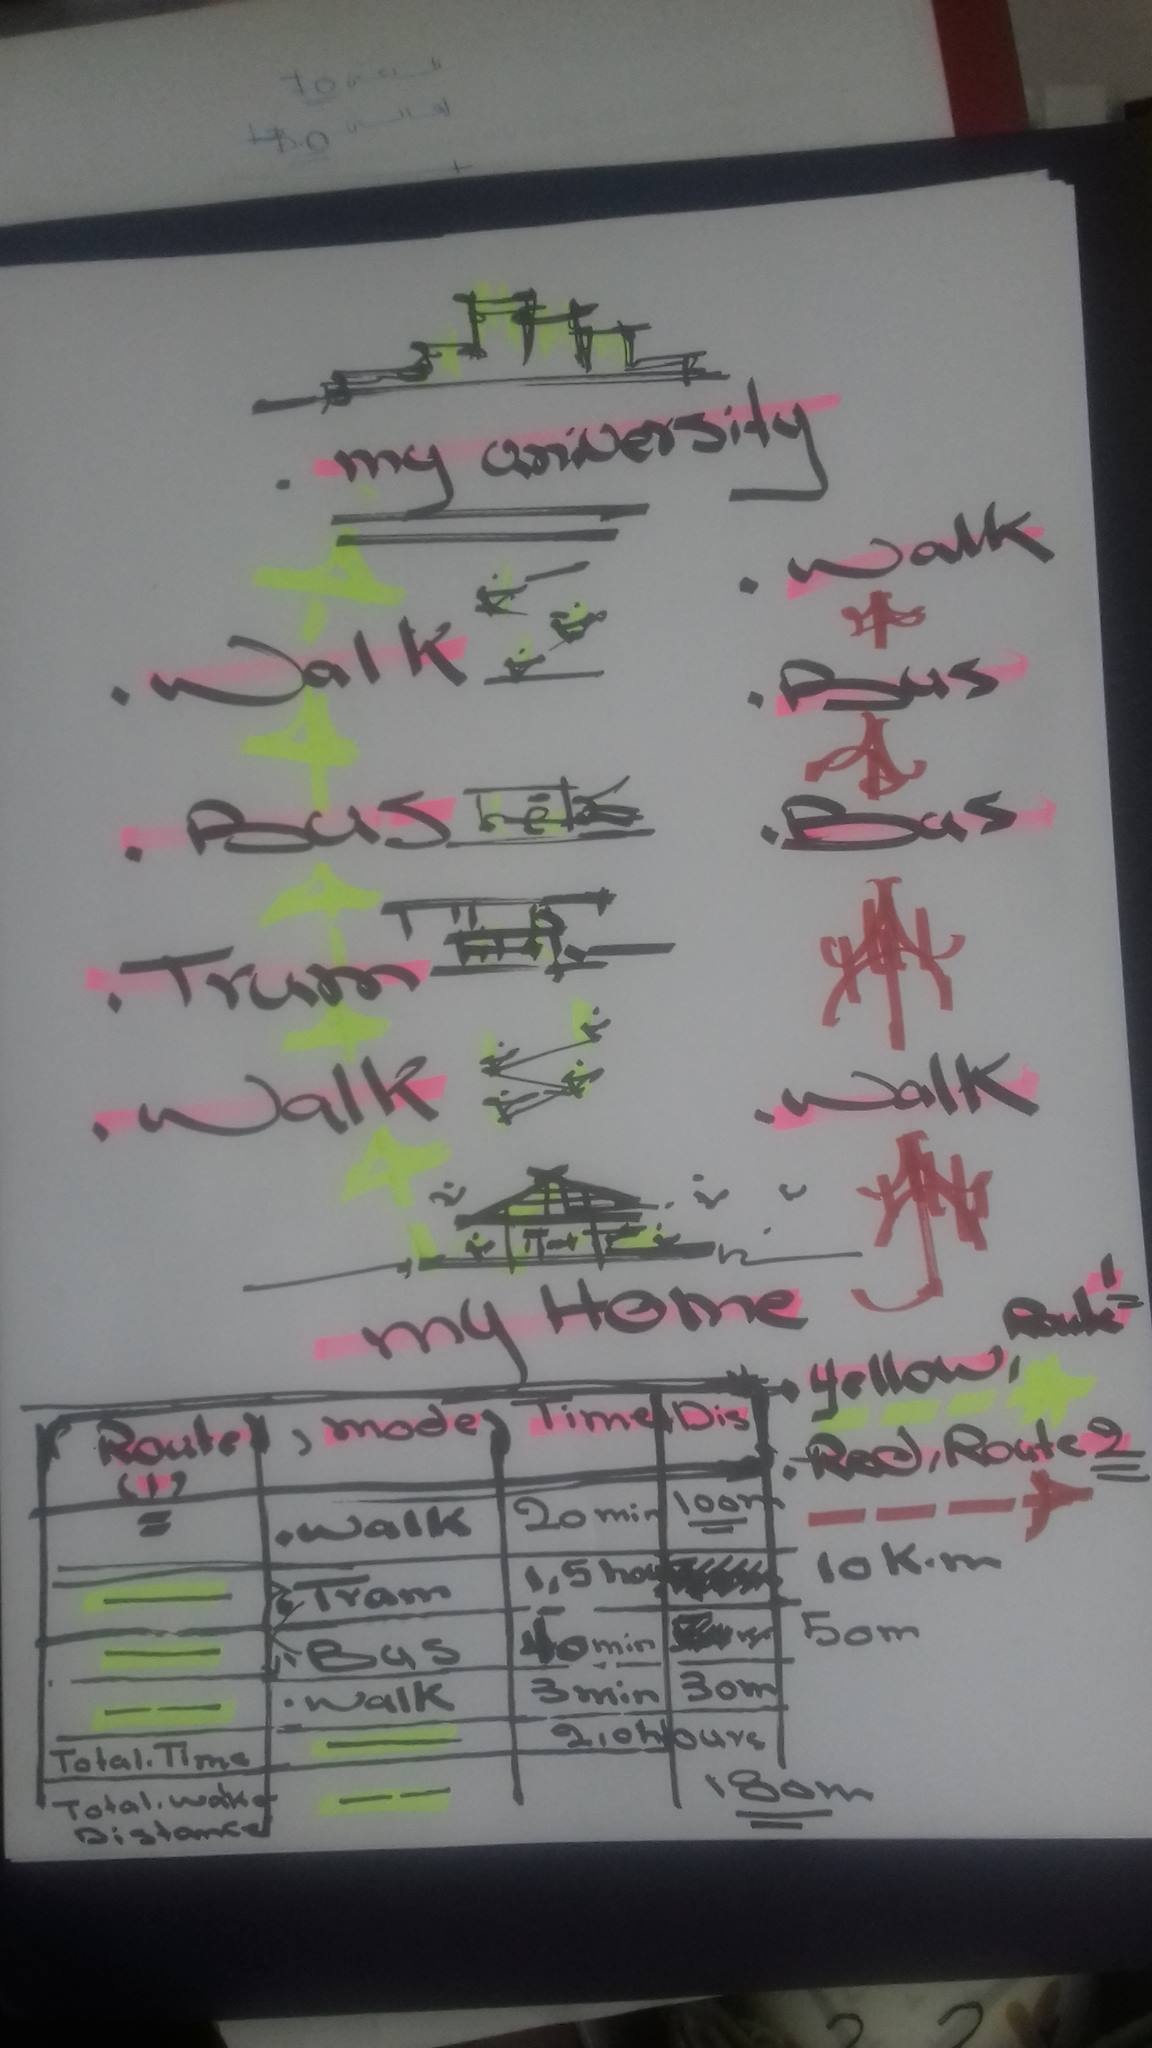 . my university
. Walk
. Bus
. Trum
. Walk
. Walk
. Bus
. Bus
. Walk
my Home
Route 1
. yellow,
. Red, Route 2
Route (1), mode, Time Dis
. Walk 20 min 100m
Tram 1,5 hou 10 K.m
Bus 40 min 50m
. Walk 3 min 30m
Total. Time 2.0 hours
Total. Distance 180m